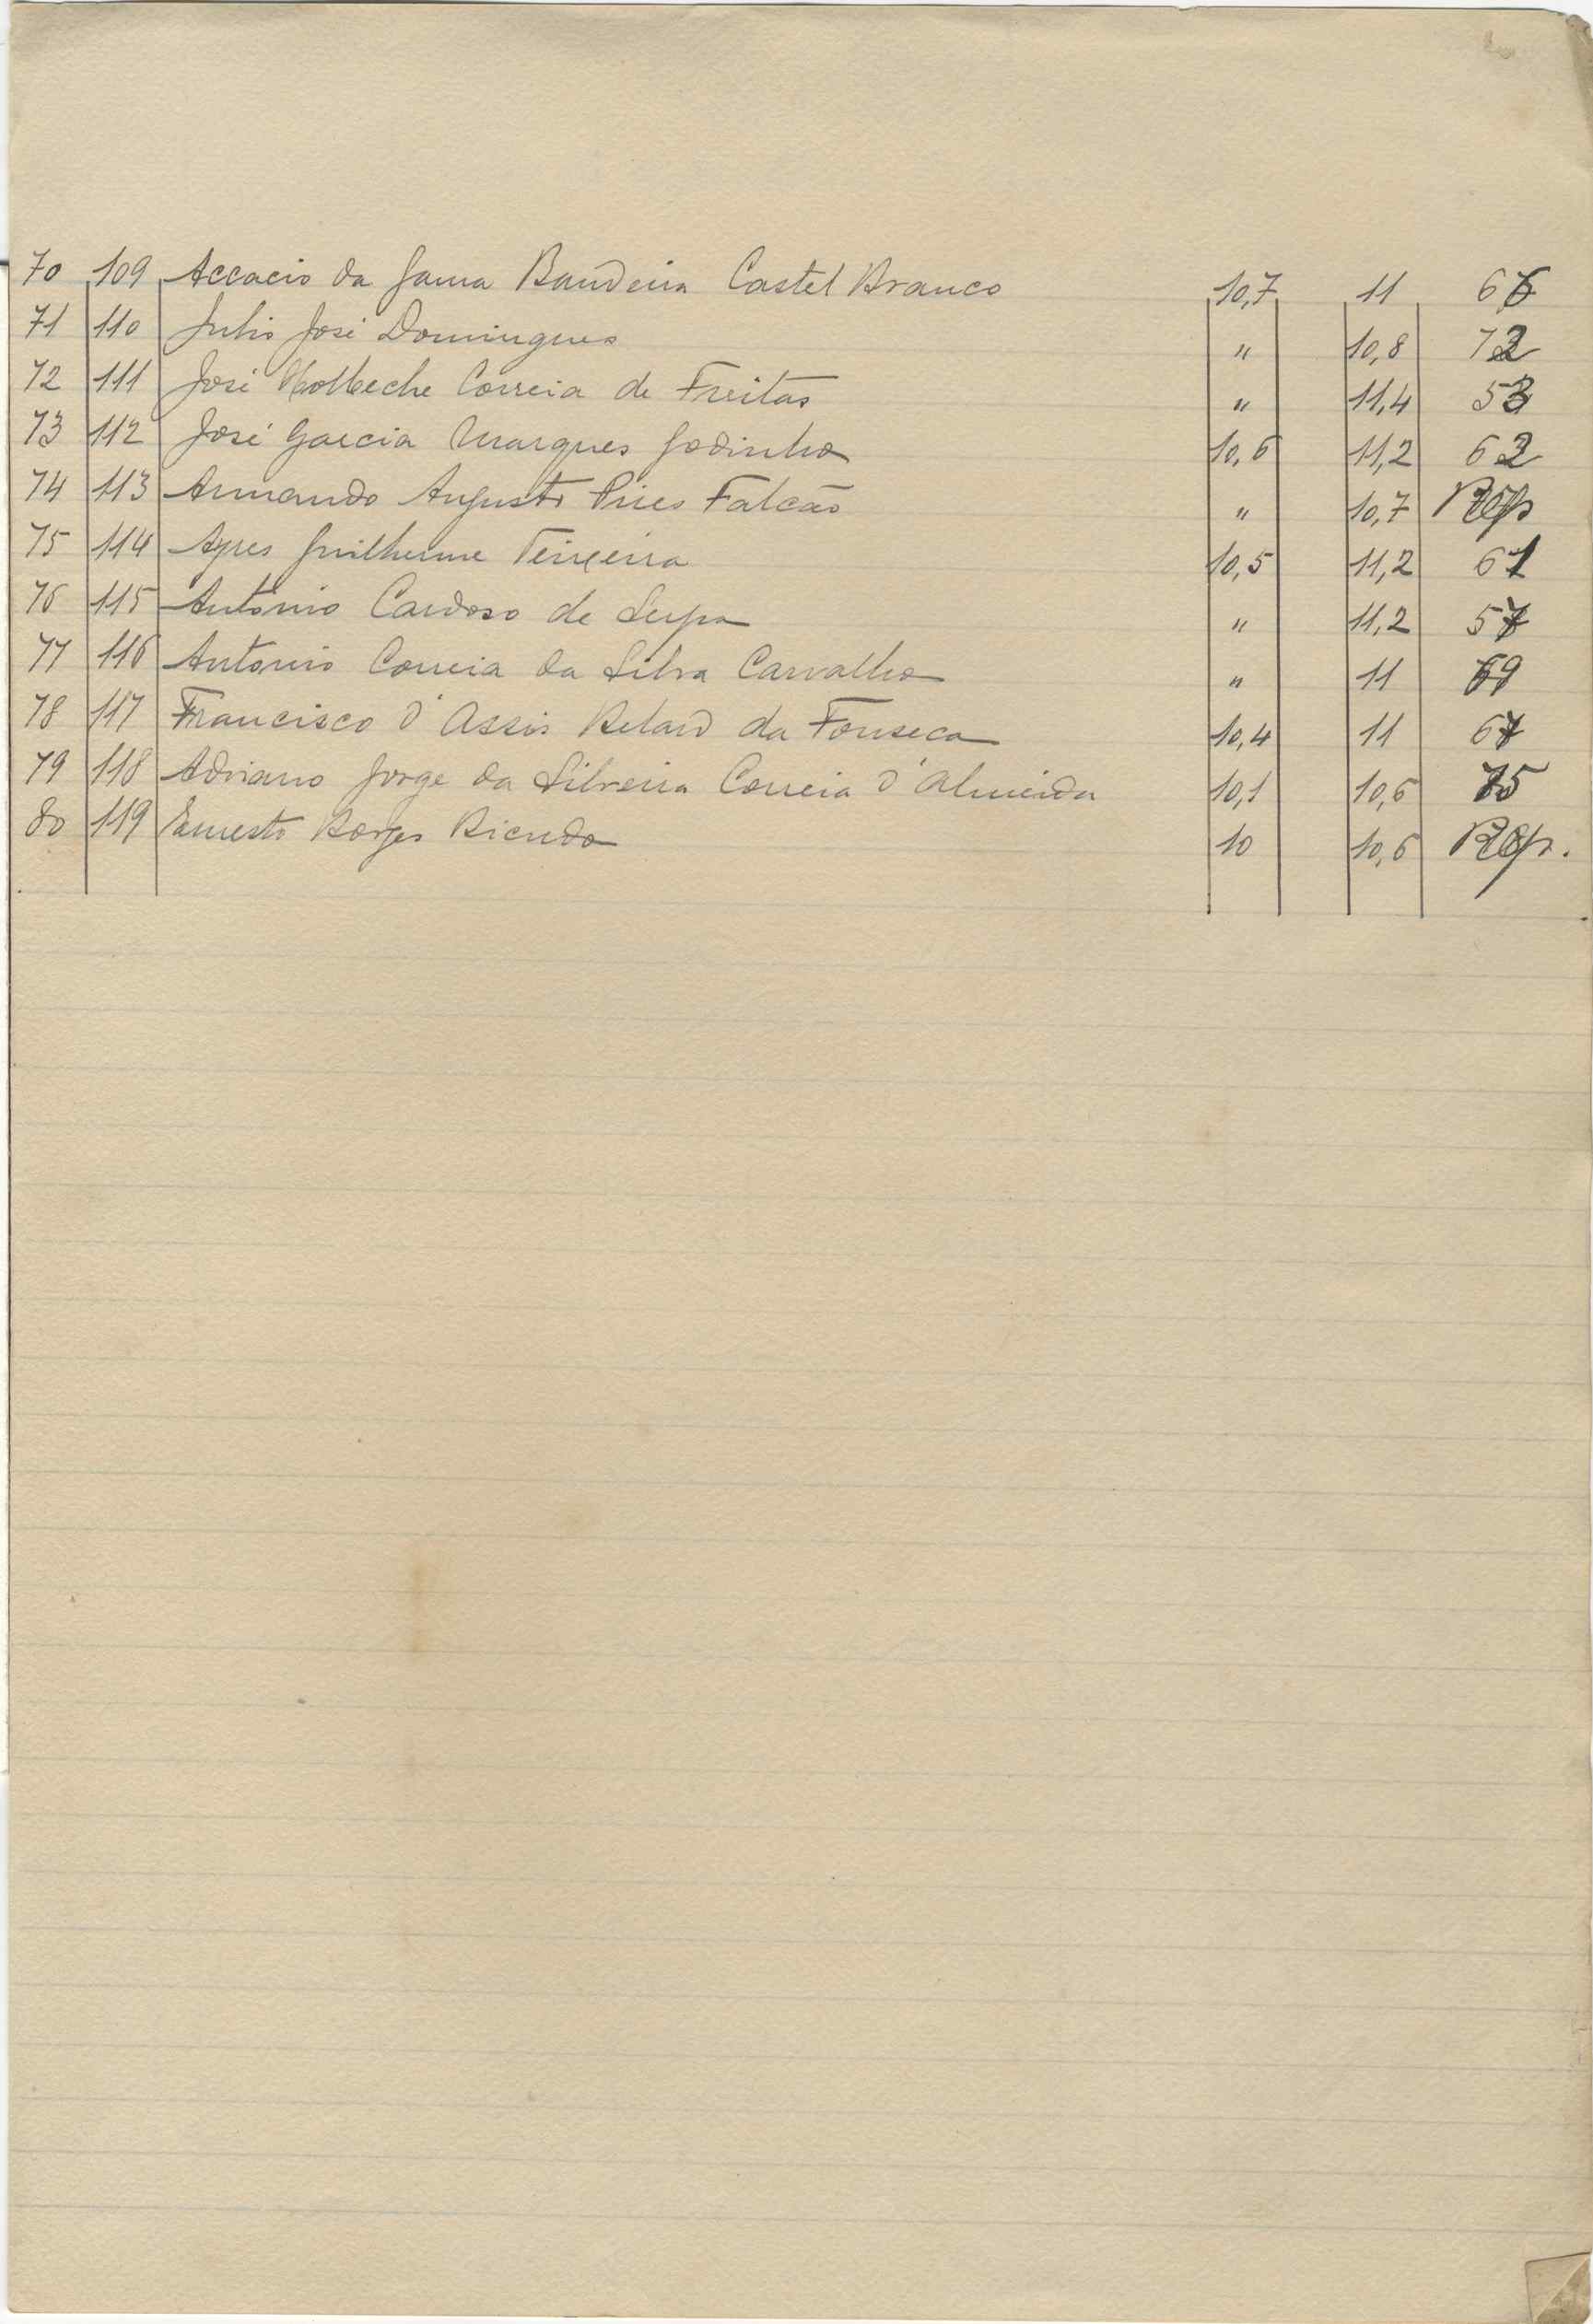 70 109 Accacio da Gama Bandeira Castel Branco 10,7 11 66
71 110 Julio José Domingues " 10,8 72
72 111 José Holbeche Correia de Freitas " 11,4 53
73 112 José Garcia Marques Godinho 10,6 11,2 62
74 113 Armando Augusto Pires Falcão " 10,7 Rep
75 114 Ayres Guilherme Teixeira 10,5 11,2 61
76 115 António Cardoso de Serpa " 11,2 57
77 116 Antonio Correia da Silva Carvalho " 11 69
78 117 Francisco d'Assis Belard da Fonseca 10,4 11 67
79 118 Adriano Jorge da Silveira Correia d'Almeida 10,1 10,6 75
80 119 Ernesto Borges Bicudo 10 10,6 Rep.